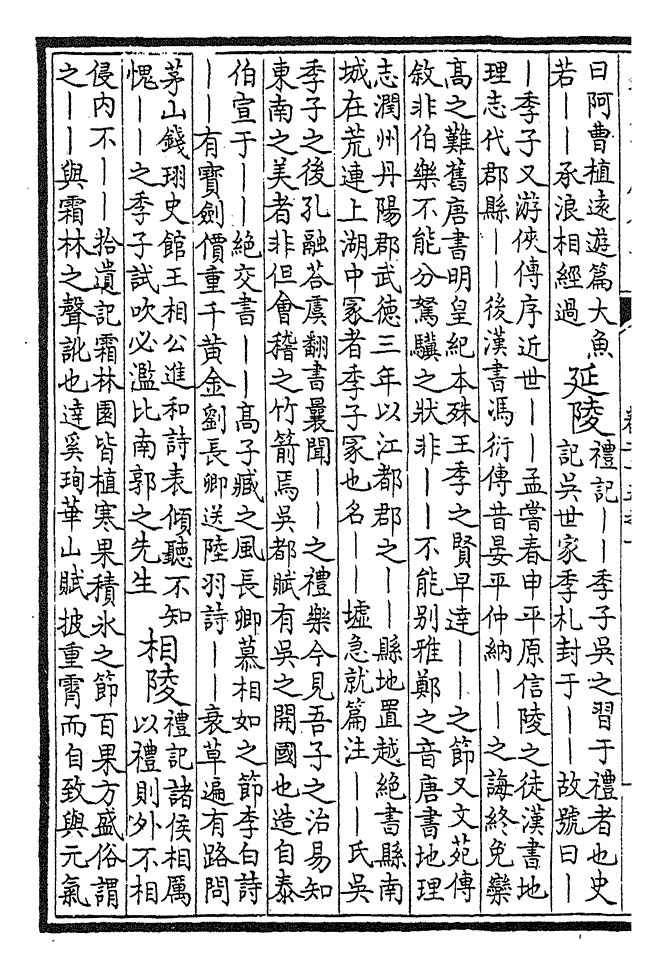 曰阿曹植遠遊篇大魚
若——承浪相經過
延陵
禮記——季子吳之習于禮者也史
記吳世家季札封于——故號曰—
—季子又游俠傳序近世——孟嘗春申平原信陵之徒漢書地
理志代郡縣——後漢書馮衍傳昔晏平仲納——之誨終免欒
高之難舊唐書明皇紀本殊王季之賢早達——之節又文苑傳
敘非伯樂不能分駑驥之狀非——不能别雅鄭之音唐書地理
志潤州丹陽郡武徳三年以江都郡之——縣地置越絶書縣南
城在荒連上湖中冢者季子冢也名——墟急就篇注——氏吳
季子之後孔融荅虞翻書曩聞——之禮樂今見吾子之治易知
東南之美者非但會稽之竹箭焉吳都賦有吳之開國也造自泰
伯宣于——絶交書——高子臧之風長卿慕相如之節李白詩
——有寶劍價重千黄金劉長卿送陸羽詩——衰草遍有路問
茅山錢珝史館王相公進和詩表傾聽不知
愧——之季子試吹必濫比南郭之先生
相陵
禮記諸侯相厲
以禮則外不相
侵内不——拾遺記霜林園皆植寒果積氷之節百果方盛俗謂
之——與霜林之聲訛也逹奚珣華山賦披重霄而自致與元氣